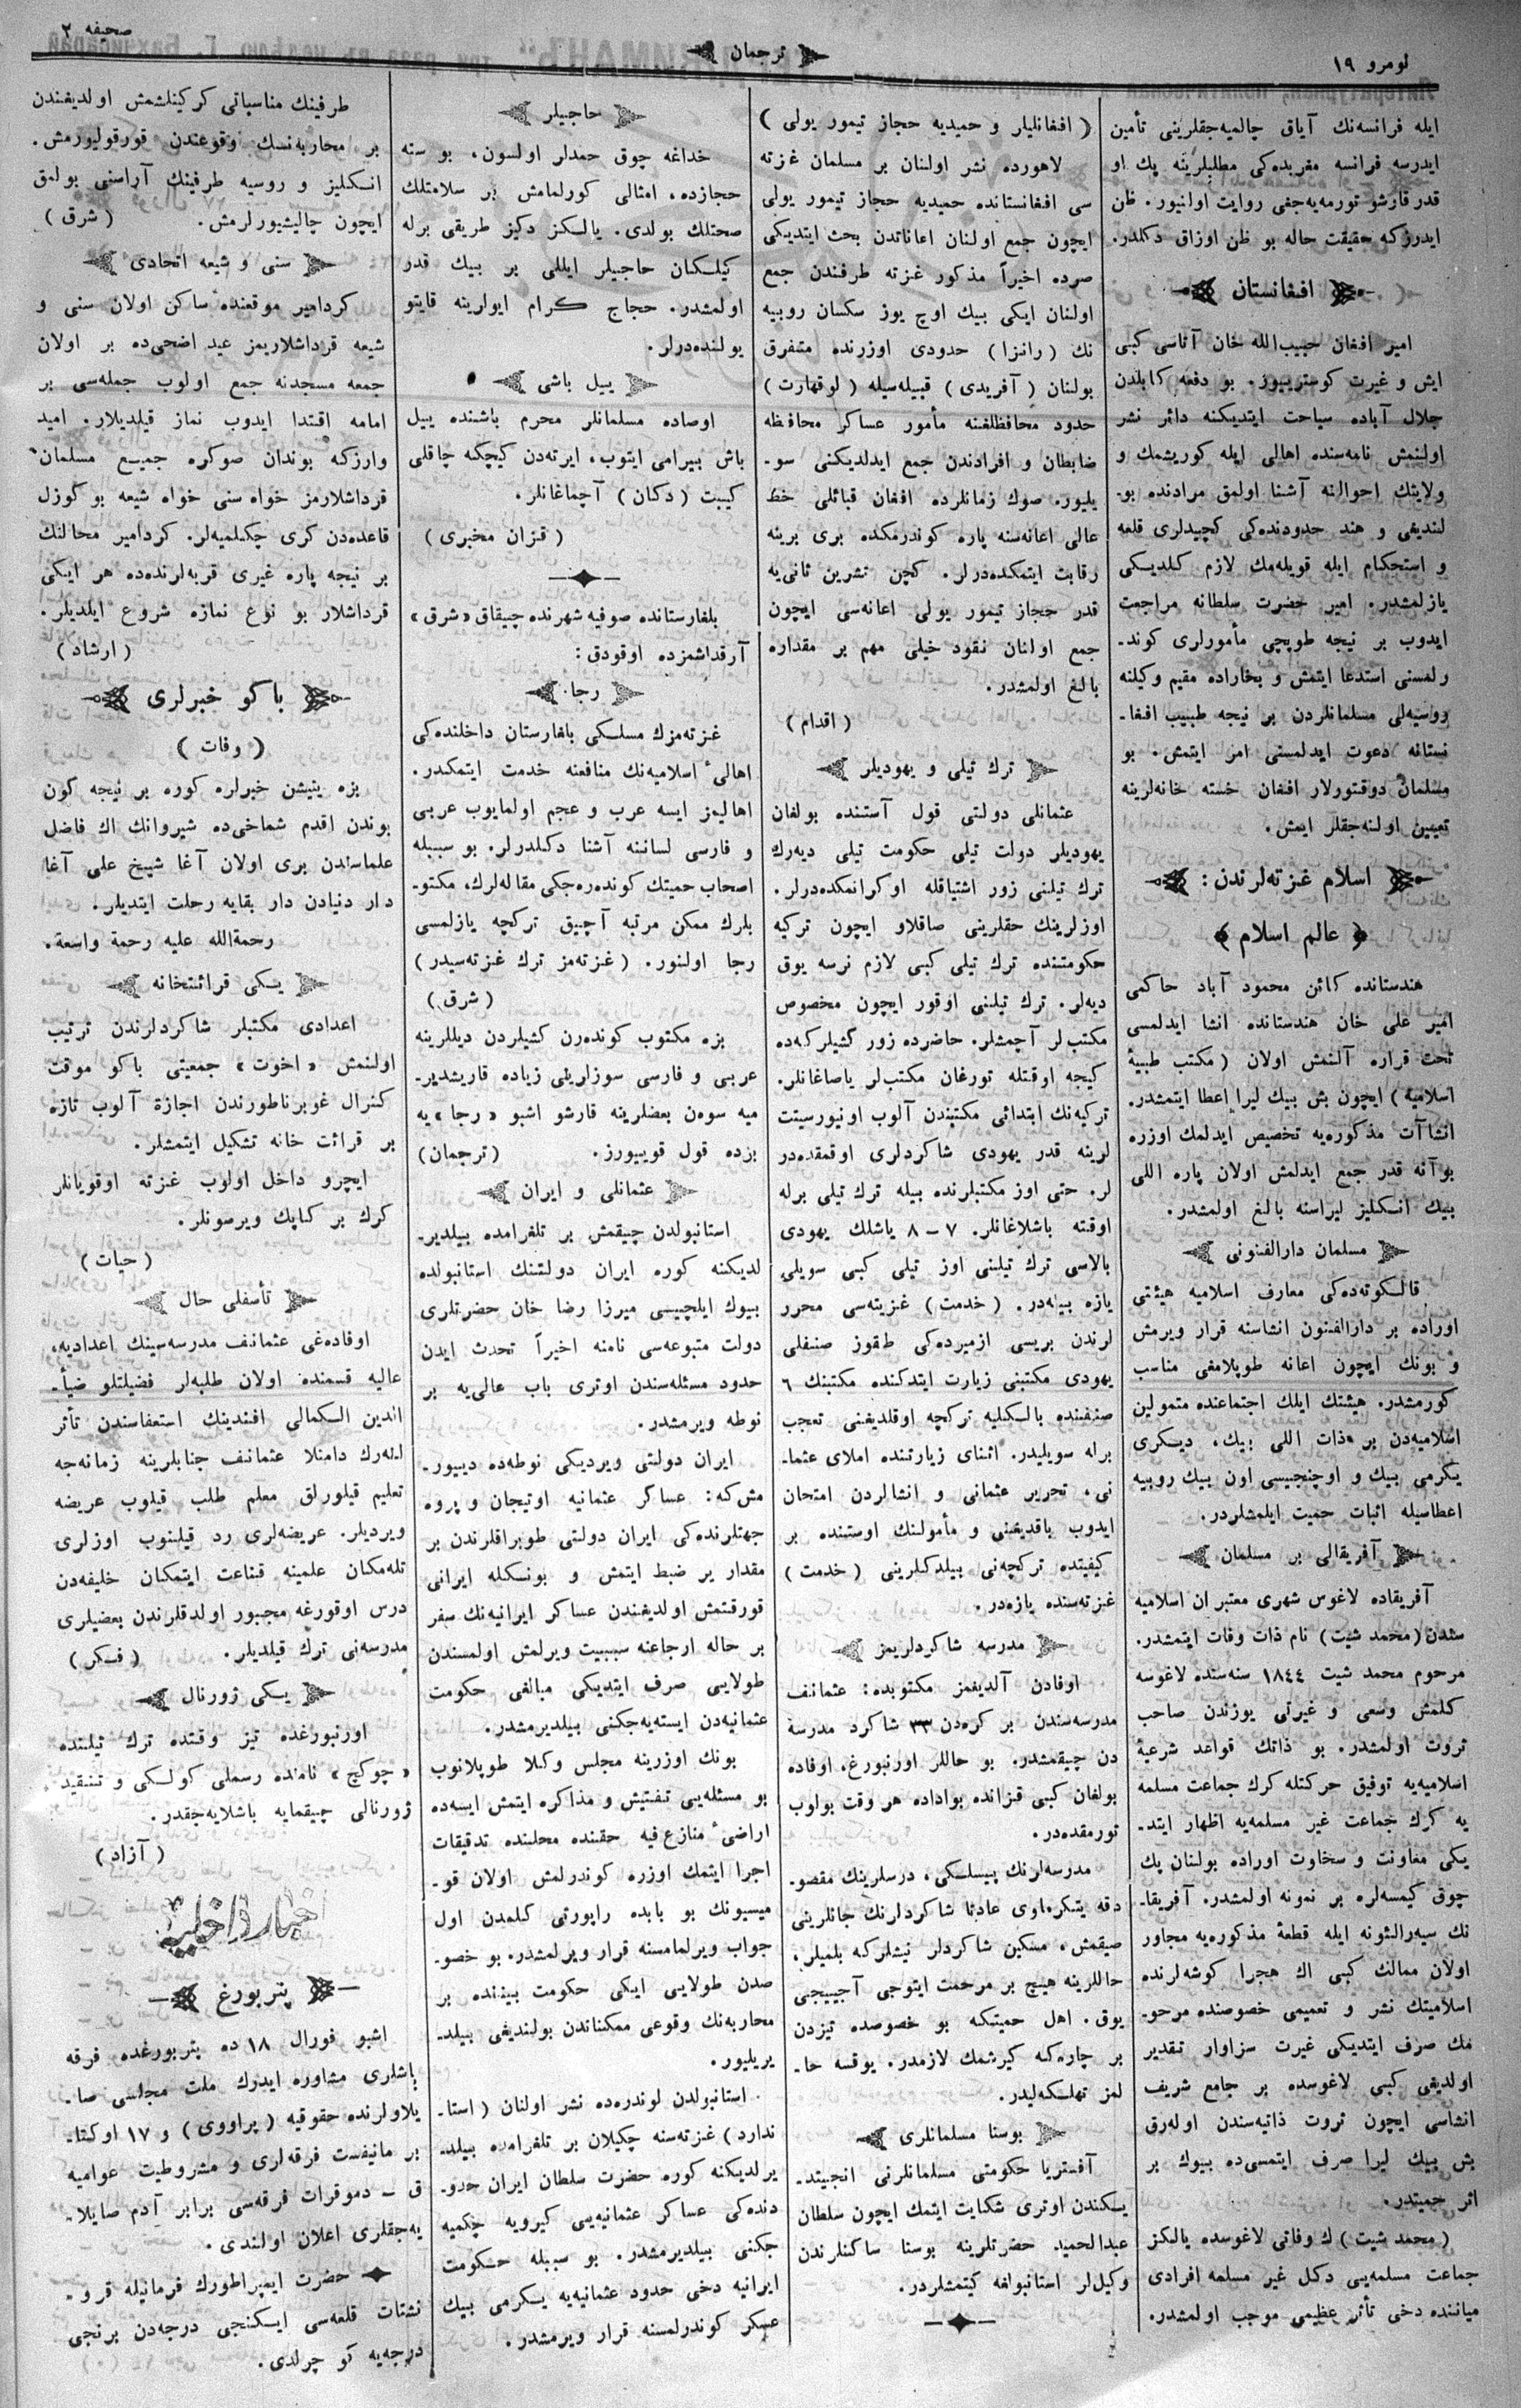 نومرو ١٩
ترجمان
صحیفه ٢
ایله فرانسه‌نك آیاق چالمیه‌جقلرینی تأمین
ایدرسه فرانسه مغربده‌كی مطلبلرینه پك او
قدر قارشو تورمه‌یه‌جغی روایت اولنیور. ظن
ایدرزكه حقیقت حاله بو ظن اوزاق دكلدر.
افغانستان
امیر افغان حبیب‌الله خان آتاسی كبی
ایش و غیرت كوسترییور. بو دفعه كابلدن
جلال آباده سیاحت ایتدیكنه دائر نشر
اولنمش نامه‌سنده اهالی ایله كوریشمك و
ولایتك احوالنه آشنا اولمق مرادنده بو-
لندیغی و هند حدودنده‌كی كچیدلری قلعه
و استحكام ایله قویله‌مك لازم كلدیـكی
یازلمشدر. امیر حضرت سلطانه مراجعت
ایدوب بر نیجه طوپچی مأمورلری كوند-
رلمسنی استدعا ایتمش و بخاراده مقیم وكیلنه
روسیه‌لی مسلمانلردن بر نیجه طبیب افغا-
نستانه دعوت ایدلمسنی امر ایتمش. بو
مسلمان دوقتورلار افغان خسته خانه‌لرینه
تعیین اولنه‌جقلر ایمش.
اسلام غزته‌لرندن:
﴿ عالم اسلام ﴾
هندستانده كائن محمود آباد حاكمی
امیر علی خان هندستانده انشا ایدلمسی
تحت قراره آلنمش اولان (مكتب طبیۀ
اسلامیه) ایچون بش بیك لیرا اعطا ایتمشدر.
انشاآت مذكوره‌یه تخصیص ایدلمك اوزره
بوآنه قدر جمع ایدلمش اولان پاره اللی
بیك انـكلیز لیراسنه بالغ اولمشدر.
مسلمان دارالفنونی
قالـكوته‌ده‌كی معارف اسلامیه هیئتی
اوراده بر دارالفنون انشاسنه قرار ویرمش
و بونك ایچون اعانه طوپلامغی مناسب
كورمشدر. هیئتك ایلك اجتماعنده متمولین
اسلامیه‌دن بر ذات اللی بیك، دیـكری
یكرمی بیك و اوچنجیسی اون بیك روپیه
اعطاسیله اثبات حمیت ایلمشلردر.
آفریقالی بر مسلمان
آفریقاده لاغوس شهری معتبران اسلامیه
سندن (محمد شیت) نام ذات وفات ایتمشدر.
مرحوم محمد شیت ١٨٤٤ سنه‌سنده لاغوسه
كلمش وسعی و غیرتی یوزندن صاحب
ثروت اولمشدر. بو ذاتك قواعد شرعیۀ
اسلامیه‌یه توفیق حركتله كرك جماعت مسلمه
یه كرك جماعت غیر مسلمه‌یه اظهار ایتد-
یكی معاونت و سخاوت اوراده بولنان پك
چوق كیمسه‌لره بر نمونه اولمشدر. آفریقا-
نك سیه‌رالئونه ایله قطعۀ مذكوره‌یه مجاور
اولان ممالك كبی اك هجرا كوشه‌لرنده
اسلامیتك نشر و تعمیمی خصوصنده مرحو-
مك صرف ایتدیكی غیرت سزاوار تقدیر
اولدیغی كبی لاغوسده بر جامع شریف
انشاسی ایچون ثروت ذاتیه‌سندن اوله‌رق
بش بیك لیرا صرف ایتمسی‌ده بیوك بر
اثر حمیتدر.
(محمد شیت) ك وفاتی لاغوسده یالكز
جماعت مسلمه‌یی دكل غیر مسلمه افرادی
میاننده دخی تأثر عظیمی موجب اولمشدر.
(افغانلیلر و حمیدیه حجاز تیمور یولی)
لاهورده نشر اولنان بر مسلمان غزته
سی افغانستانده حمیدیه حجاز تیمور یولی
ایچون جمع اولنان اعاناتدن بحث ایتدیـكی
صرده اخیراً مذكور غزته طرفندن جمع
اولنان ایكی بیك اوچ یوز سكسان روپیه
نك (رانزا) حدودی اوزرنده متفرق
بولنان (آفریدی) قبیله‌سیله (لوقهارت)
حدود محافظلغنه مأمور عساكر محافظه
ضابطان و افرادندن جمع ایدلدیكنی سو-
یلیور. صوك زمانلرده افغان قبائلی خط
عالی اعانه‌سنه پاره كوندرمكده بری برینه
رقابت ایتمكده‌درلر. كچن تشرین ثانی‌یه
قدر حجاز تیمور یولی اعانه‌سی ایچون
جمع اولنان نقود خیلی مهم بر مقداره
بالغ اولمشدر.
(اقدام)
ترك تیلی و یهودیلر
عثمانلی دولتی قول آستنده بولغان
یهودیلر دولت تیلی حكومت تیلی دیه‌رك
ترك تیلنی زور اشتیاقله اوكرانمكده‌درلر.
اوزلرینك حقلرینی صاقلاو ایچون تركیه
حكومتنده ترك تیلی كبی لازم نرسه یوق
دیه‌لر. ترك تیلنی اوقور ایچون مخصوص
مكتب‌لر آچمشلر. حاضرده زور كشیلركه‌ده
كیجه اوقتله تورغان مكتب‌لر یاصاغانلر.
تركیه‌نك ابتدائی مكتبندن آلوب اونیورسیتت
لرینه قدر یهودی شاكردلری اوقمقده‌در
لر. حتی اوز مكتبلرنده بیله ترك تیلی برله
اوقته باشلاغانلر. ٧ – ٨ یاشلك یهودی
بالاسی ترك تیلینی اوز تیلی كبی سویلی
یازه بیله‌در. (خدمت) غزیته‌سی محرر
لرندن بریسی ازمیرده‌كی طقوز صنفلی
یهودی مكتبنی زیارت ایتدكنده مكتبنك ٦
صنفنده بالـكلیه تركچه اوقلدیغنی تعجب
برله سویلیدر. اثنای زیارتنده املای عثما-
نی، تحریر عثمانی و انشالردن امتحان
ایدوب باقدیغنی و مأمولنك اوستنده بر
كیفیتده تركچه‌نی بیلدكلرینی (خدمت)
غزته‌سنده یازه‌در.
مدرسه شاكردلریمز
اوفادن آلدیغمز مكتوبده: عثمانف
مدرسه‌سندن بر كره‌دن ٣٣ شاكرد مدرسۀ
دن چیقمشدر. بو حاللر اورنبورغ، اوفاده
بولغان كبی قزانده بواداده هر وقت بولوب
تورمقده‌در.
مدرسه‌لرنك پیسلـكی، درسلرینك مقصو-
دقه یتیكره‌اوی عادتا شاكردلرنك جانلرینی
صیقمش، مسكین شاكردلر نیشلركه بلمیلر،
حاللرینه هیچ بر مرحمت ایتوجی آجییجی
یوق. اهل حمیتكه بو خصوصده تیزدن
بر چاره‌كه كیرشمك لازمدر. یوقسه حا-
لمز تهلـكه‌لیدر.
بوسنا مسلمانلری
آفستریا حكومتی مسلمانلرنی انجیتد-
یـكندن اوتری شكایت ایتمك ایچون سلطان
عبدالحمید حضرتلرینه بوسنا ساكنلرندن
وكیل‌لر استانبولغه كیتمشلردر.
حاجیلر
خداغه چوق حمدلر اولسون، بو سنه
حجازده، امثالی كورلمامش بر سلامتلك
صحتلك بولدی. یالـكز دكیز طریقی برله
كیلـكان حاجیلر ایللی بر بیك قدر
اولمشدر. حجاج كرام ایولرینه قایتو
یولنده‌درلر.
ییل باشی
اوصاده مسلمانلر محرم باشنده ییل
باش بیرامی ایتوب، ایرته‌دن كیچكه چاقلی
كیبت (دكان) آچماغانلر.
(قزان مخبری)
بلغارستانده صوفیه شهرنده چیقاق «شرق»
آرقداشمزده اوقودق:
رجا
غزته‌مزك مسلـكی بلغارستان داخلنده‌كی
اهالیٔ اسلامیه‌نك منافعنه خدمت ایتمكدر.
اهالیمز ایسه عرب و عجم اولمایوب عربی
و فارسی لساننه آشنا دكلدرلر. بو سببله
اصحاب حمیتك كونده‌ره‌جكی مقاله‌لرك، مكتو-
بلرك ممكن مرتبه آچیق تركچه یازلمسی
رجا اولنور. (غزته‌مز ترك غزته‌سیدر)
(شرق)
بزه مكتوب كونده‌رن كشیلردن دیللرینه
عربی و فارسی سوزلرینلی زیاده قاریشدیر-
میه سوه‌ن بعضلرینه قارشو اشبو «رجا» یه
بزده قول قوییورز. (ترجمان)
عثمانلی و ایران
استانبولدن چیقمش بر تلغرامده بیلدیر-
لدیكنه كوره ایران دولتنك استانبولده
بیوك ایلچیسی میرزا رضا خان حضرتلری
دولت متبوعه‌سی نامنه اخیراً تحدث ایدن
حدود مسئله‌سندن اوتری باب عالی‌یه بر
نوطه ویرمشدر.
ایران دولتی ویردیكی نوطه‌ده دیییور-
مش‌كه: عساكر عثمانیه اوتیجان و پروه
جهتلرنده‌كی ایران دولتی طوبراقلرندن بر
مقدار یر ضبط ایتمش و بونـكله ایرانی
قورقتمش اولدیغندن عساكر ایرانیه‌نك سفر
بر حاله ارجاعنه سببیت ویرلمش اولمسندن
طولایی صرف ایتدیكی مبالغی حكومت
عثمانیه‌دن ایسته‌یه‌جكنی بیلدیرمشدر.
بونك اوزرینه مجلس وكلا طوپلانوب
بو مسئله‌یی تفتیش و مذاكره ایتمش ایسه‌ده
اراضیٔ منازع فیه حقنده محلنده تدقیقات
اجرا ایتمك اوزره كوندرلمش اولان قو-
میسیونك بو بابده راپورتی كلمدن اول
جواب ویرلمامسنه قرار ویرلمشدر. بو خصو-
صدن طولایی ایكی حكومت بیننده بر
محاربه‌نك وقوعی ممكناتدن بولندیغی بیلد-
یریلیور.
استانبولدن لوندره‌ده نشر اولنان (استا-
ندارد) غزته‌سنه چكیلان بر تلغرامده بیلد-
یرلدیكنه كوره حضرت سلطان ایران حدو-
دنده‌كی عساكر عثمانیه‌یی كیرویه چكمیه
جكنی بیلدیرمشدر. بو سببله حكومت
ایرانیه دخی حدود عثمانیه‌یه یـكرمی بیك
عسكر كوندرلمسنه قرار ویرمشدر.
طرفینك مناسباتی كركینلشمش اولدیغندن
بر محاربه‌نسك وقوعندن قورقولیورمش.
انـكلیز و روسیه طرفینك آراسنی بولمق
ایچون چالیشیورلرمش. (شرق)
سنی و شیعه اتحادی
كردامیر موقعنده ساكن اولان سنی و
شیعه قرداشلاریمز عید اضحی‌ده بر اولان
جمعه مسجدنه جمع اولوب جمله‌سی بر
امامه اقتدا ایدوب نماز قیلدیلار. امید
وارزكه بوندان صوكره جمیع مسلمان
قرداشلارمز خواه سنی خواه شیعه بو كوزل
قاعده‌دن كری چكلمیه‌لر. كردامیر محالنك
بر نیجه پاره غیری قریه‌لرنده‌ده هر ایكی
قرداشلار بو نوع نمازه شروع ایلدیلر.
(ارشاد)
باكو خبرلری
(وفات)
بزه یتیشن خبرلره كوره بر نیجه كون
بوندن اقدم شماخی‌ده شیروانك اك فاضل
علماسندن بری اولان آغا شیخ علی آغا
دار دنیادن دار بقایه رحلت ایتدیلر.
رحمةالله علیه رحمة واسعة.
یـكی قرائتخانه
اعدادی مكتبلر شاكردلرندن ترتیب
اولنمش «اخوت» جمعیتی باكو موقت
كنرال غوبرناطورندن اجازۀ آلوب تازه
بر قرائت خانه تشكیل ایتمشلر.
ایچرو داخل اولوب غزته اوقویانلر
كرك بر كپك ویرسونلر.
(حیات)
تأسفلی حال
اوفاده‌غی عثمانف مدرسه‌سینك اعدادیه،
عالیه قسمنده اولان طلبه‌لر فضیلتلو ضیأ-
الدین الـكمالی افندینك استعفاسندن تأثر
لنه‌رك داملا عثمانف جنابلرینه زمانه‌جه
تعلیم قیلورلق معلم طلب قیلوب عریضه
ویردیلر. عریضه‌لری رد قیلنوب اوزلری
تله‌مكان علمینه قناعت ایتمكان خلیفه‌دن
درس اوقورغه مجبور اولدقلرندن بعضیلری
مدرسه‌نی ترك قیلدیلر. (فـكر)
یـكی ژورنال
اورنبورغده تیز وقتده ترك تیلنده
«چوكیچ» نامنده رسملی كولـكی و تنقید
ژورنالی چیقمایه باشلایه‌جقدر.
(آزاد)
اخبار داخلیه
پتربورغ
اشبو فورال ١٨ ده پتربورغده فرقه
باشلری مشاوره ایدرك ملت مجلسی صا-
یلاولرنده حقوقیه (پراووی) و ١٧ اوكتا-
بر مانیفست فرقه‌لری و مشروطیت عوامیه
ق – دموقرات فرقه‌سی برابر آدم صایلا-
یه‌جقلری اعلان اولندی.
حضرت ایمپراطورك فرمانیله قرو-
نشتات قلعه‌سی ایـكنجی درجه‌دن برنجی
درجه‌یه كوچرلدی.